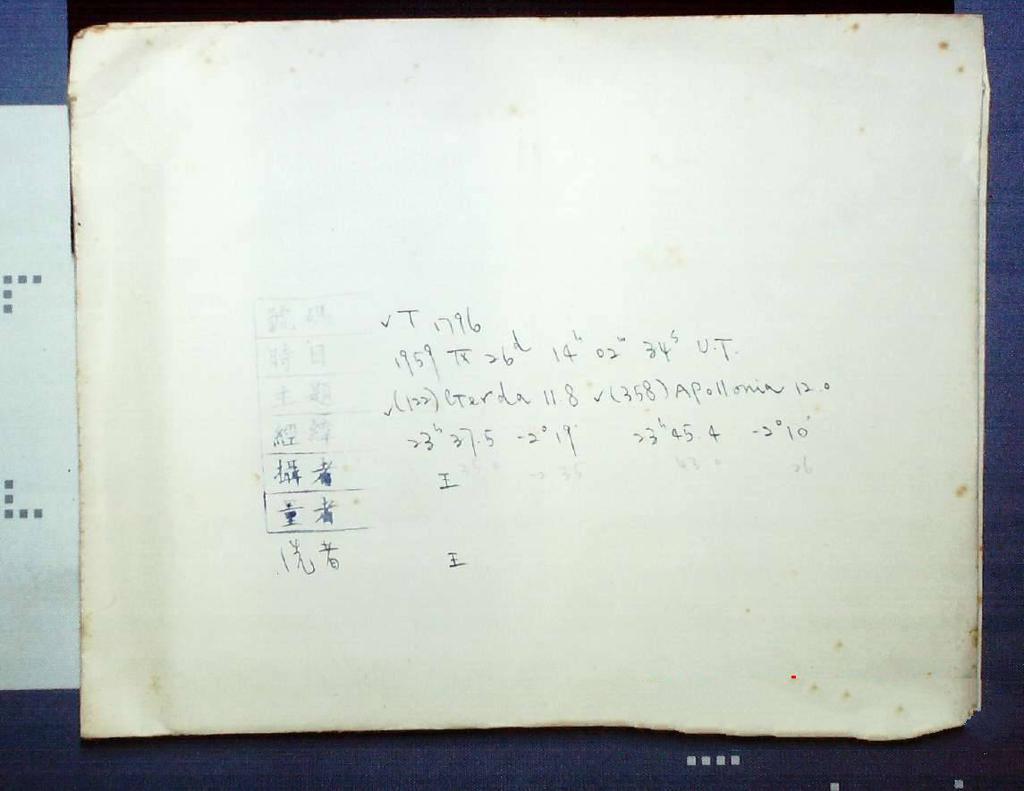 號碼 √T 1796
時日 1959 IX 26ᵈ 14ʰ 02ᵐ 34ˢ U.T.
主題 √(122) Gerda 11.8 √(358) Apollonia 12.0
經緯 23ʰ 37.5 -2°19' 23ʰ 45.4 -2°10'
-2 35 43 0 26
攝者 王
量者
洗者 王